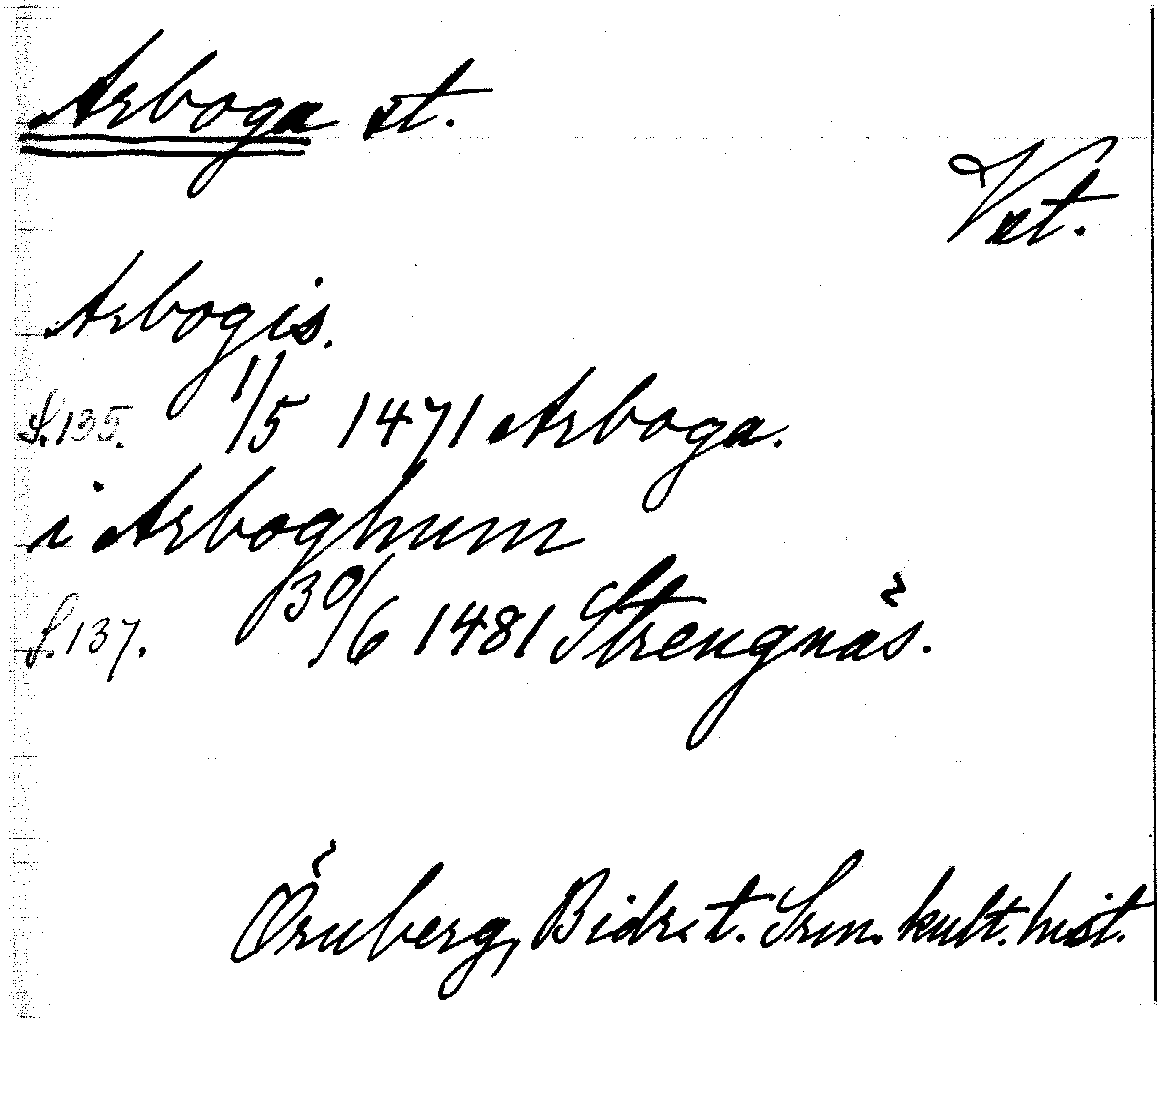 Arboga st.
Vst.
Arbogis.
S. 135. 1/5 1471 Arboga.
i Arboghum
S. 137. 30/6 1481 Strengnäs.
Örnberg, Bidr. t. Srm. kult. hist.